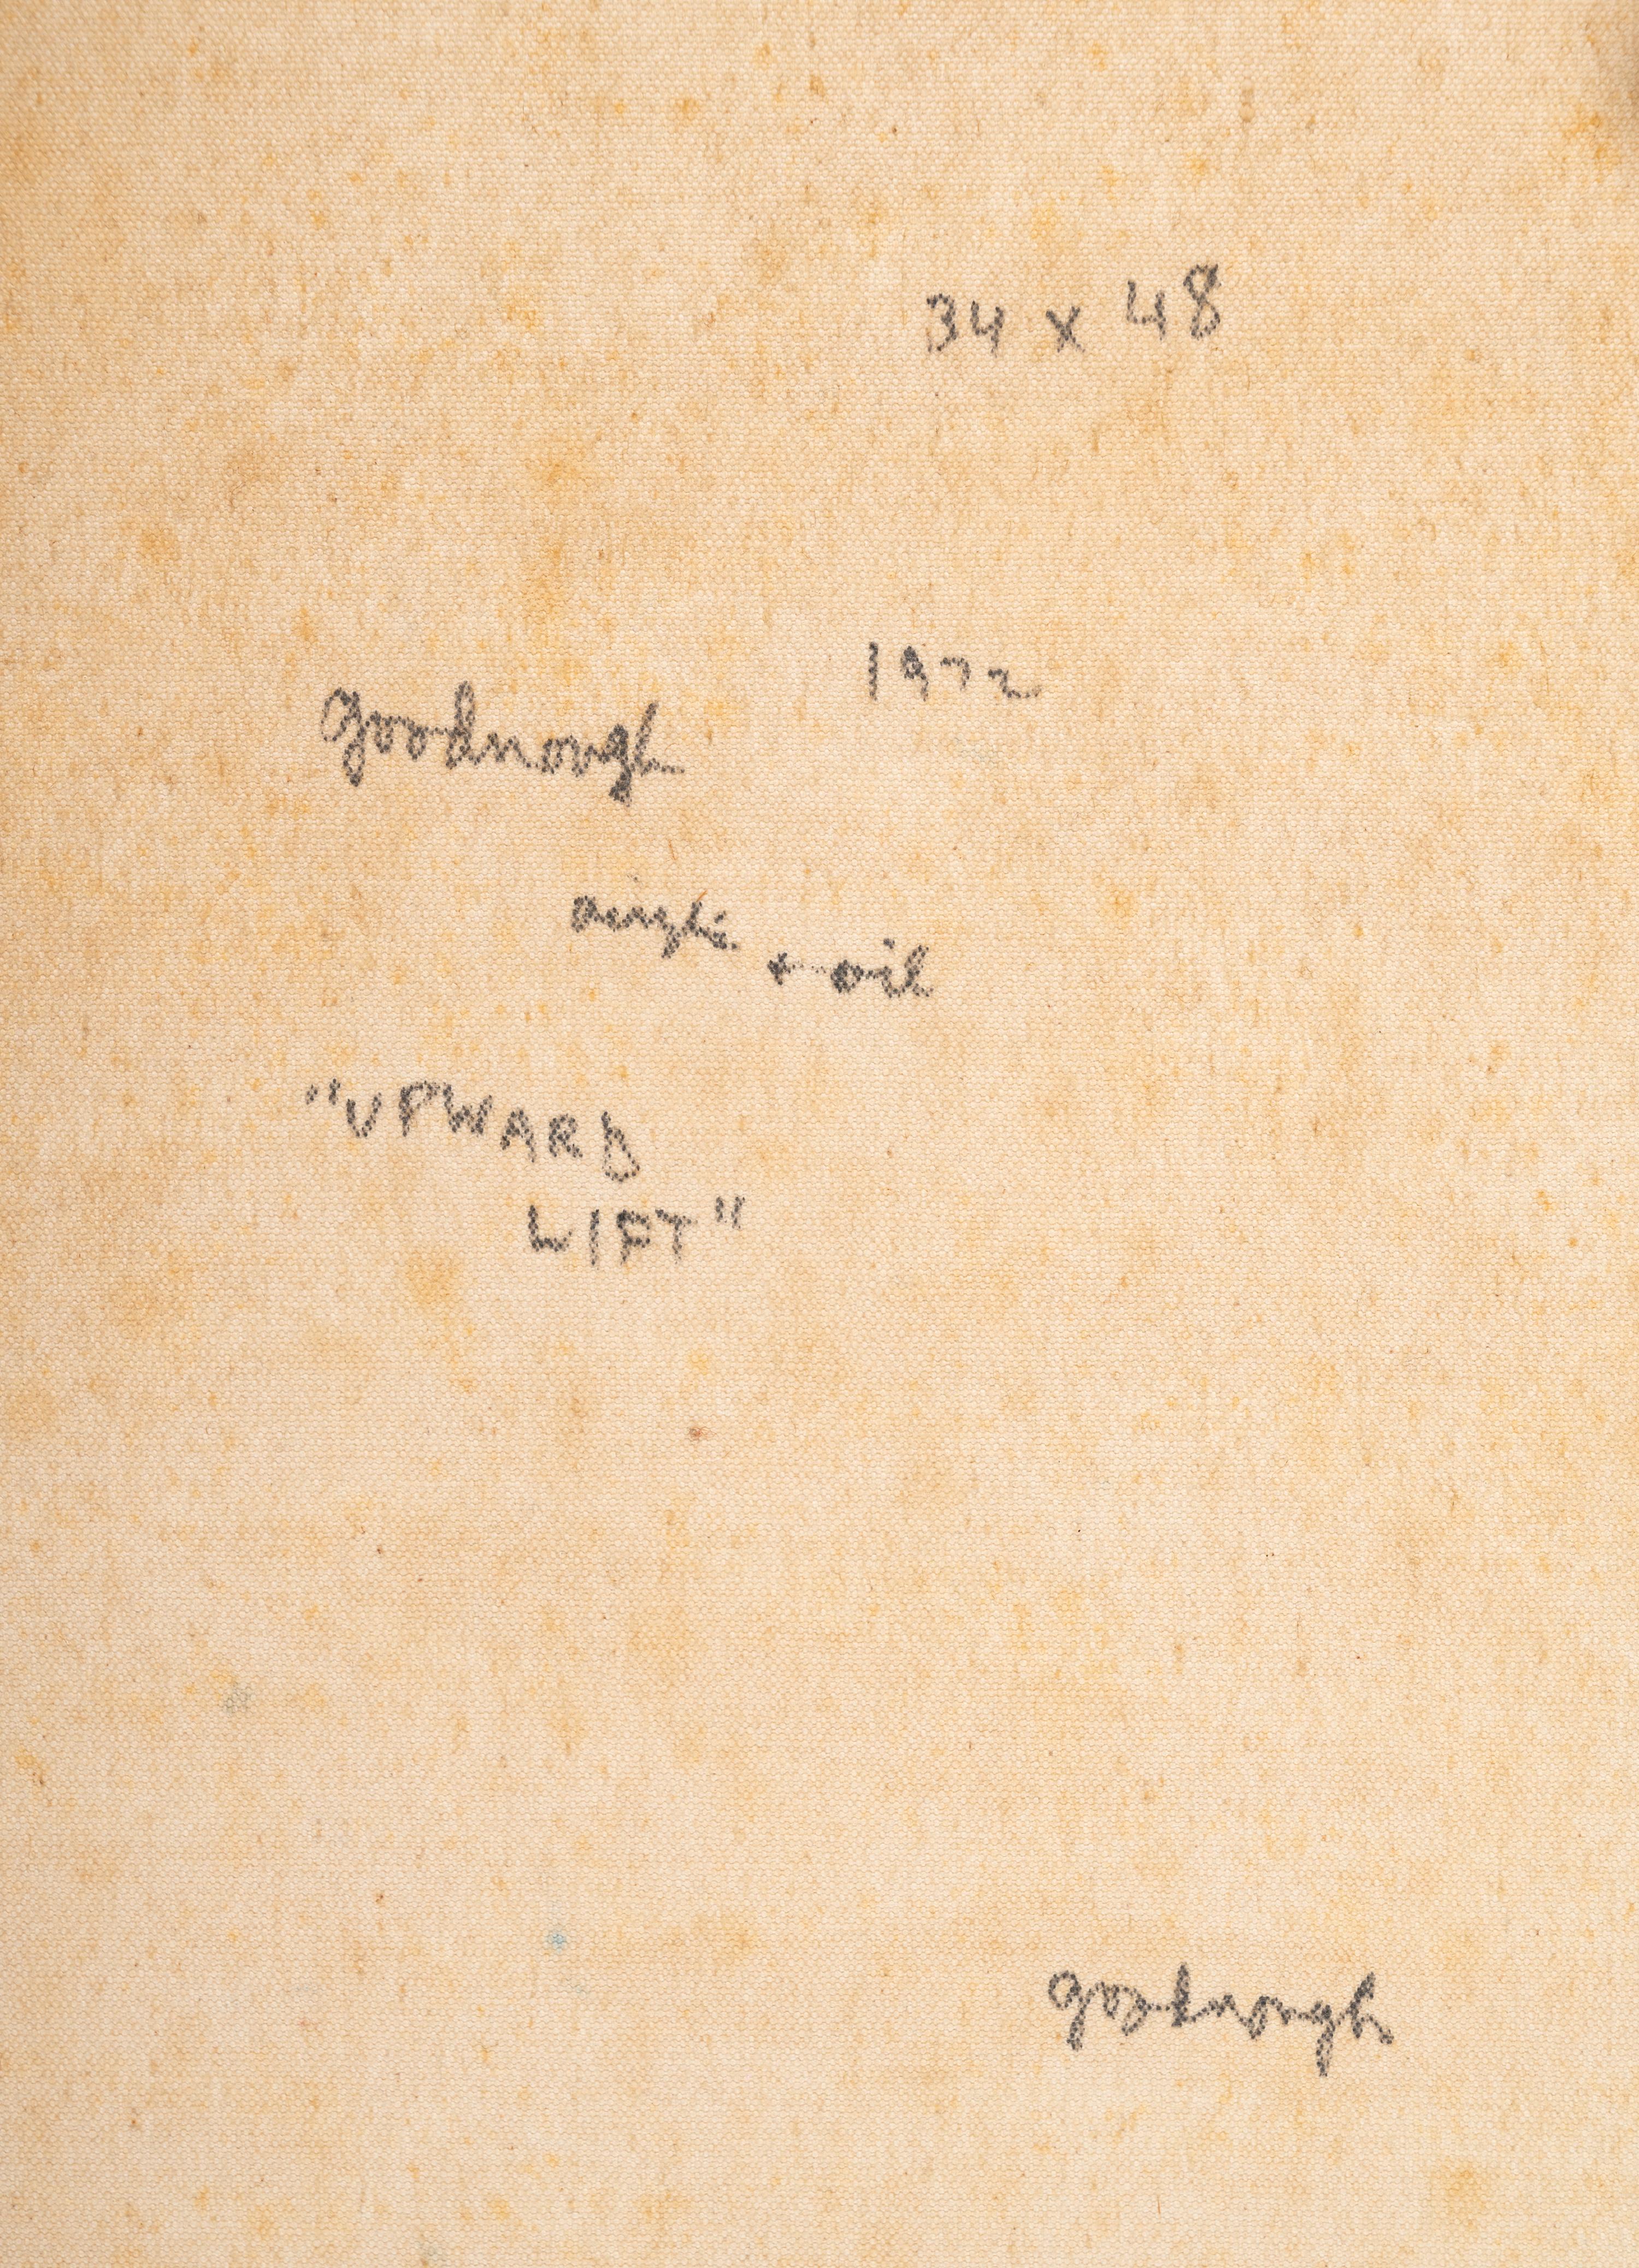 34 x 48
1972
goodnough
acrylic + oil
"UPWARD
LIFT"
goodnough